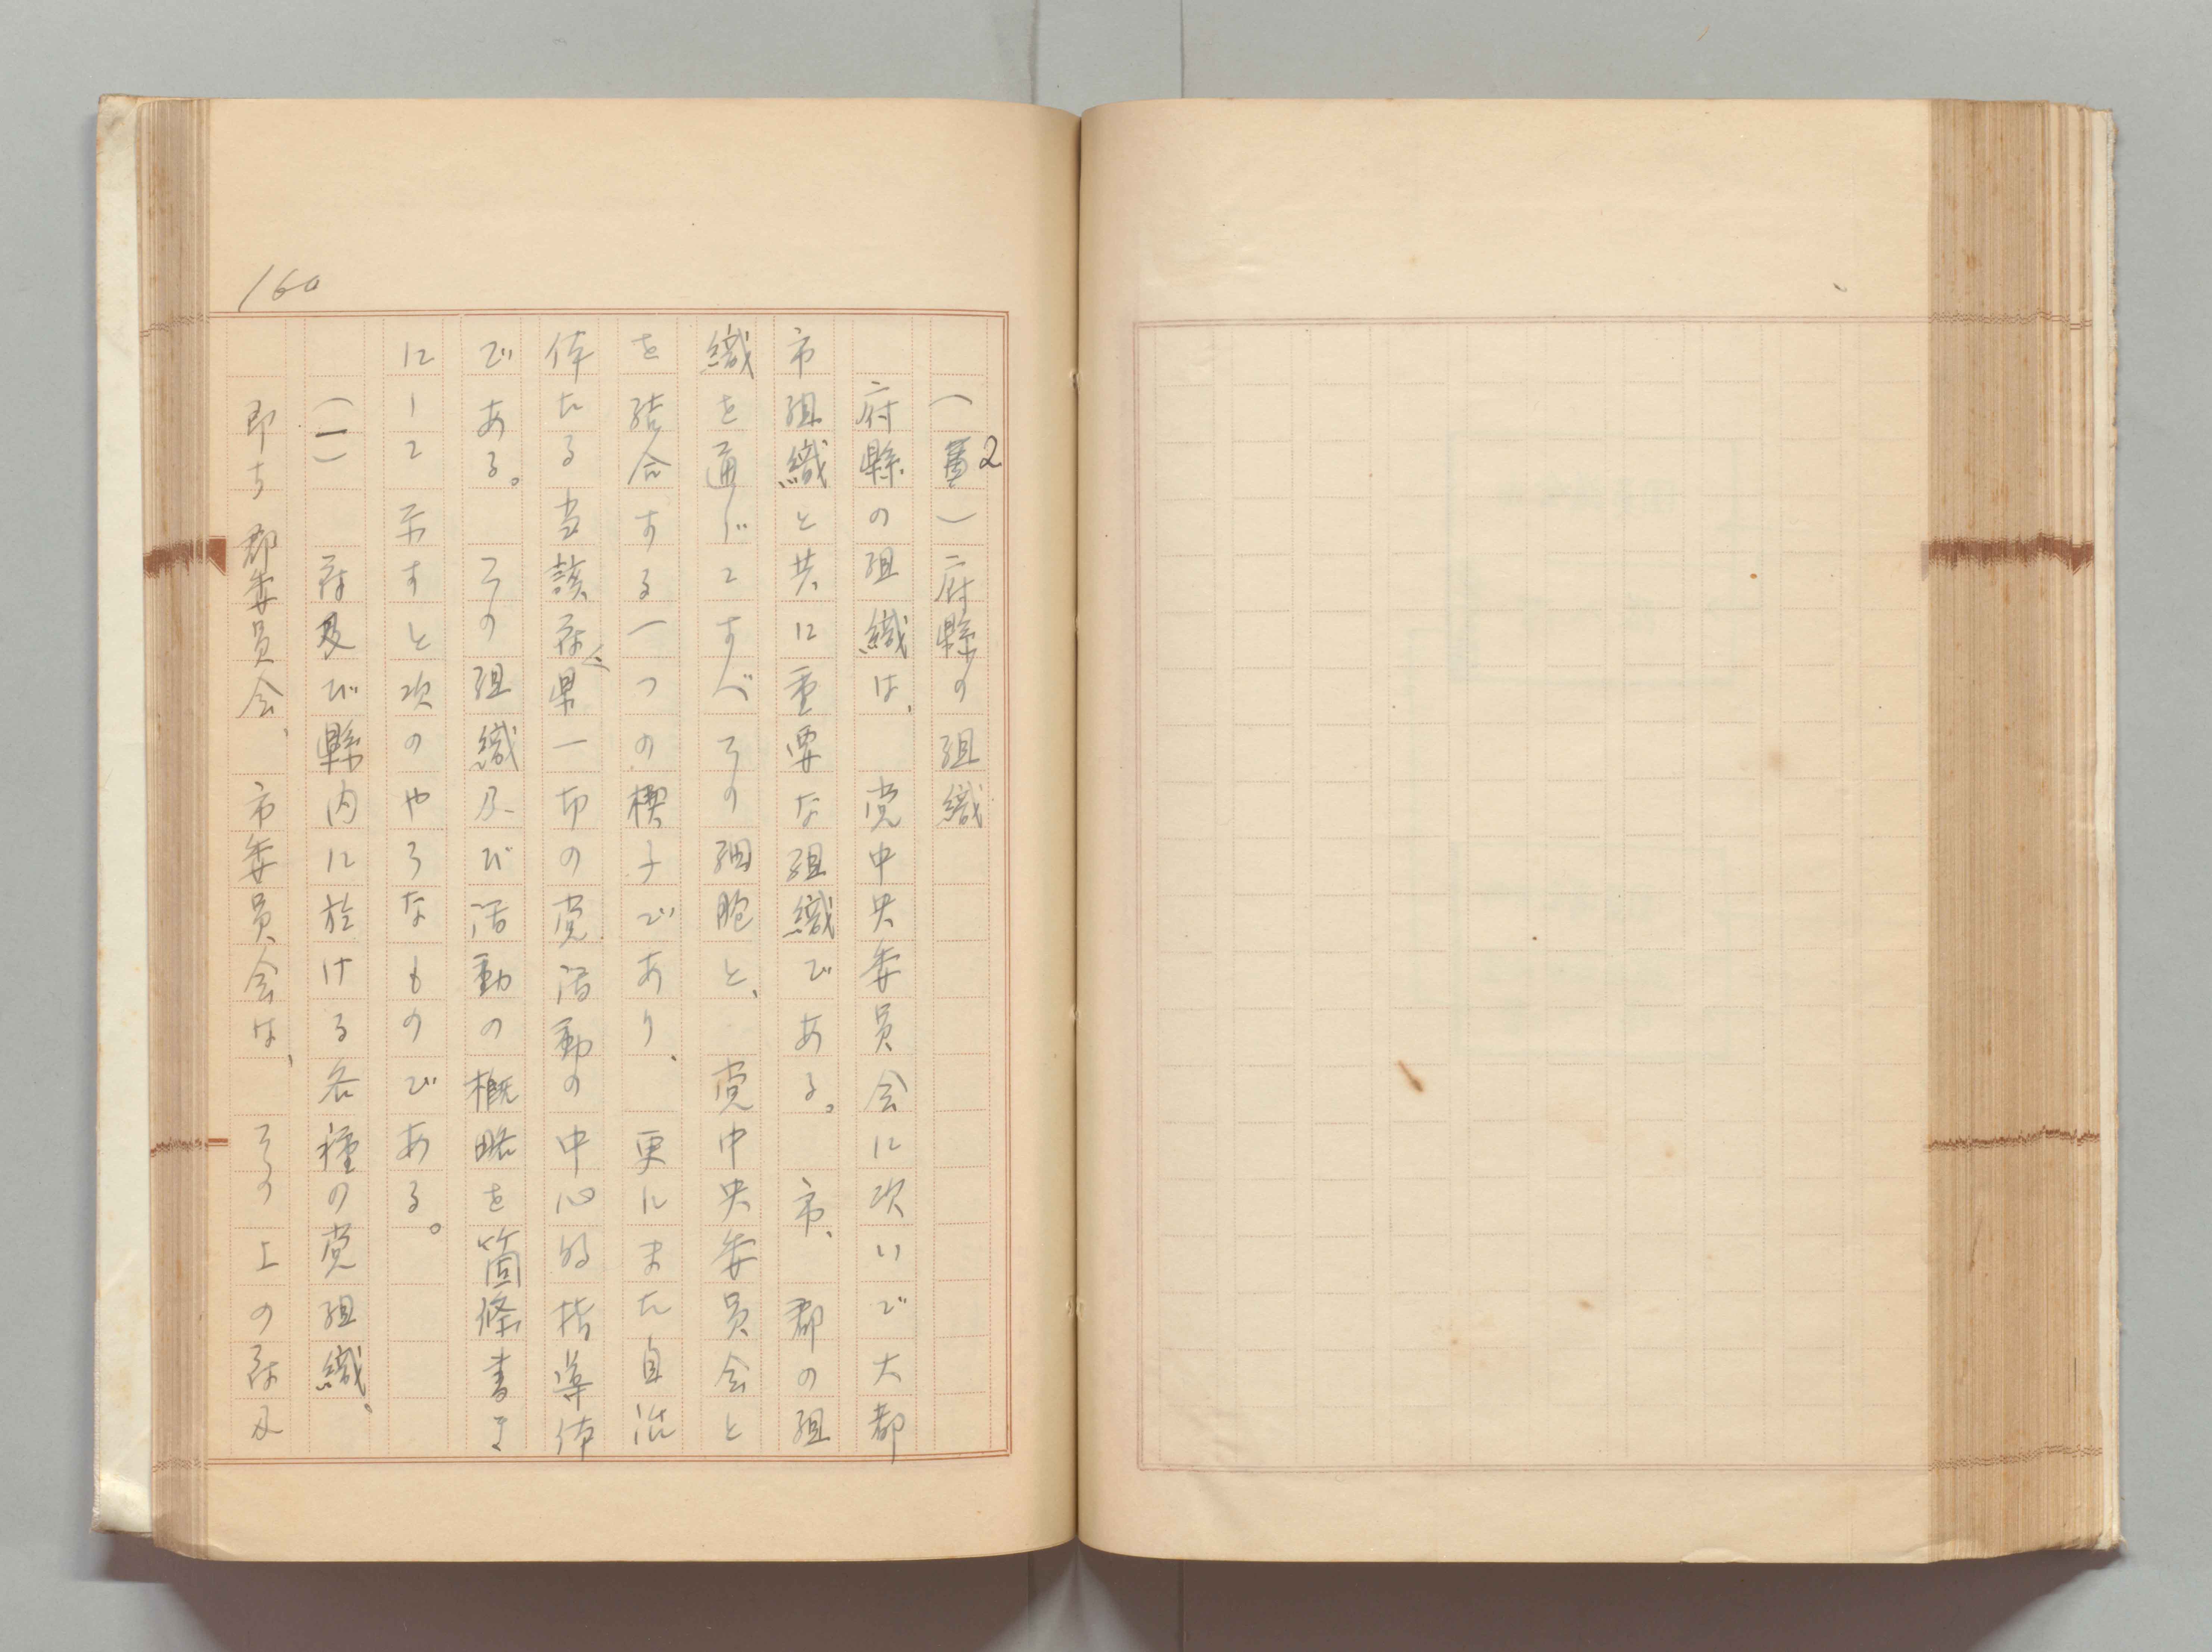 160
(2)府縣の組織
府縣の組織は、党中央委員会に次いで大都
市組織と共に重要な組織である。市、郡の組
織を通じてすべその細胞と、党中央委員会と
を結合する一つの楔子であり、更にまた自治
体たる当該府県一切の党活動の中心的指導体
である。その組織及び活動の概略を箇條書き
にして示すと次のやうなものである。
(一)府及び縣内に於ける各種の党組織。
即ち郡委員会、市委員会は、その上の府及